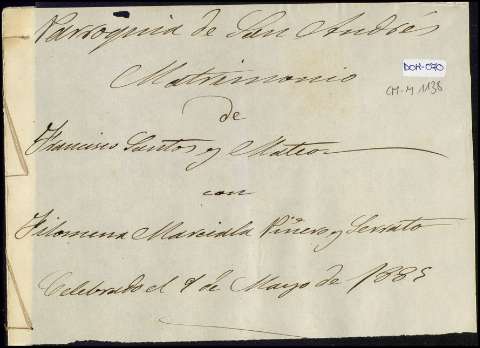 Parroquia de San Andrés
DON-070
CM-M 1138
Matrimonio
de
Francisco Santos y Mateos
con
Filomena Marciala Piñero y Serrato
Celebrado el 9 de Mayo de 1885